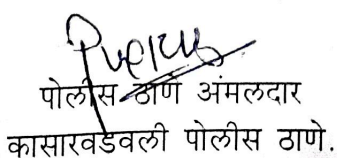 पोलीस ठाणे अंमलदार
कासारवडवली पोलीस ठाणे.